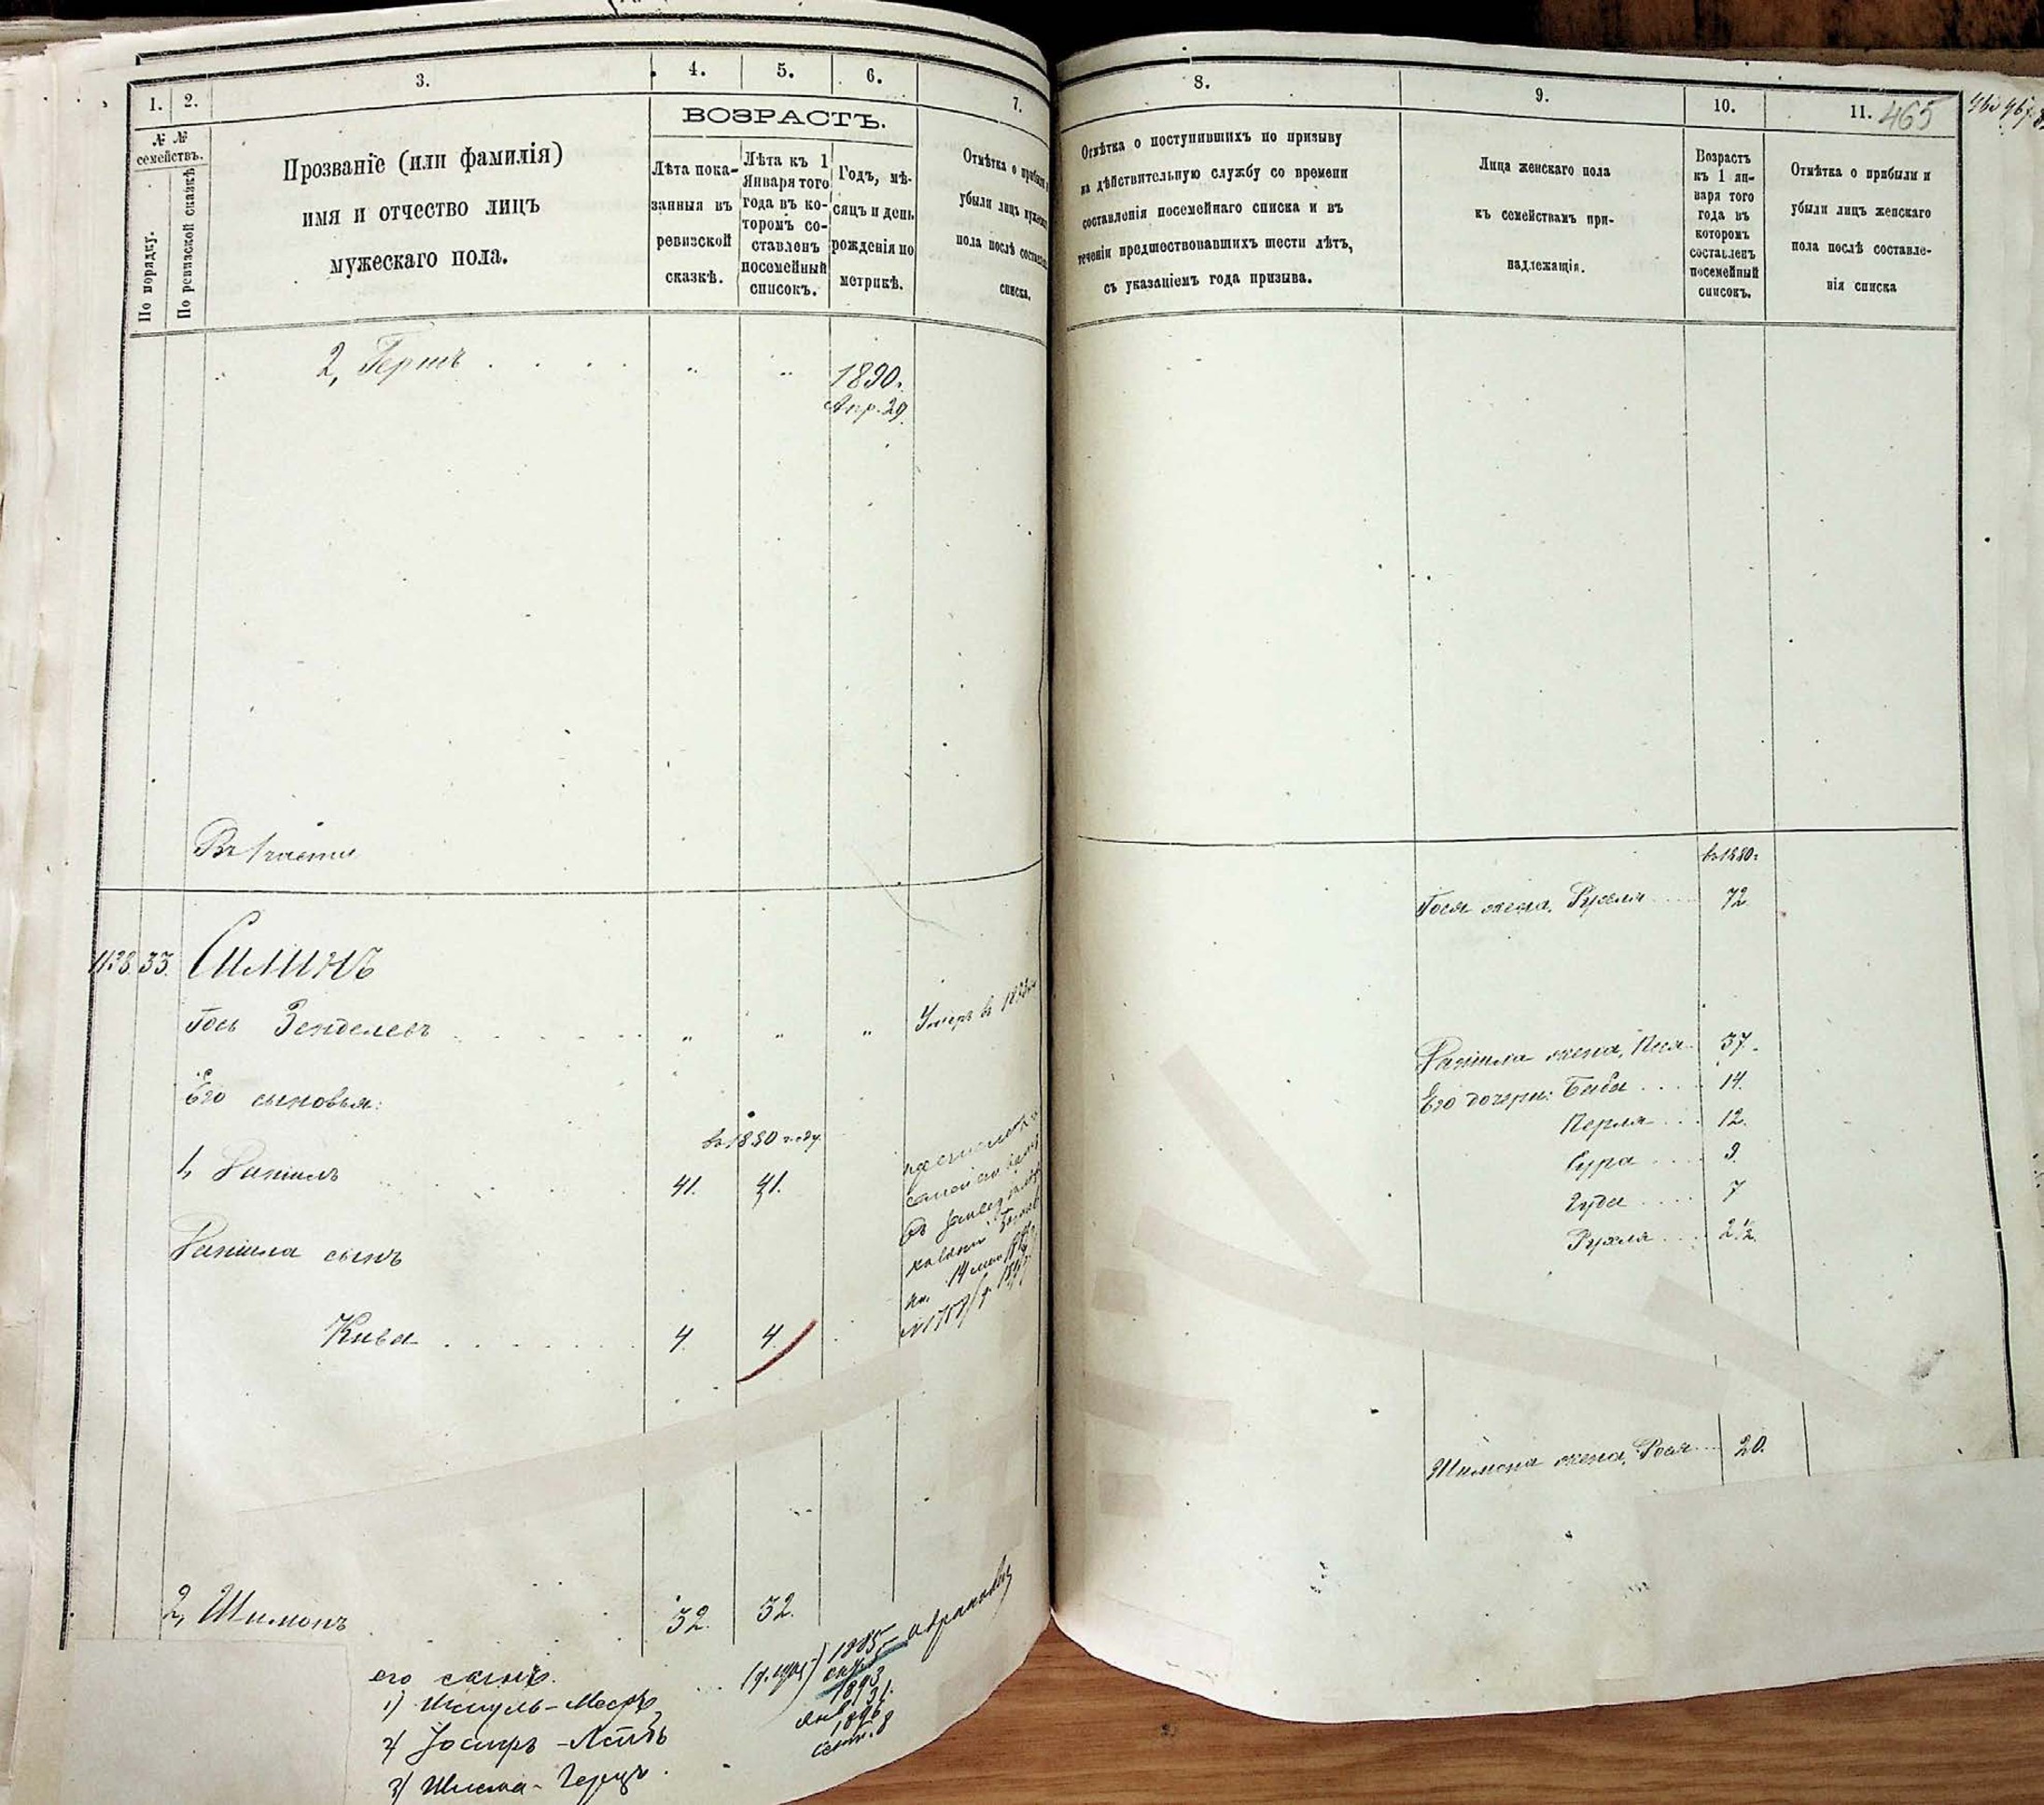 1. 2. 3. 4. 5. 6. 7.
№ №
семействъ.
По порядку.
По ревизской сказкѣ
Прозваніе (или фамилія)
имя и отчество лицъ
мужескаго пола.
ВОЗРАСТЪ.
Лѣта пока-
занныя въ
ревизской
сказкѣ.
Лѣта къ 1
Января того
года въ ко-
торомъ со-
ставленъ
посемейный
списокъ.
Годъ, мѣ-
сяцъ и день
рожденія по
метрикѣ.
Отмѣтка о
убыли лицъ
пола послѣ
списка.
2, Герша . . . . „ „ 1890.
Апр. 29.
1138 33. Силинъ
Гось Зенделевъ . . . . „ „ „ Умеръ въ
Его сыновья:
въ 1880 году.
1, Данилъ . . . 41. 41.
Данила сынъ
Кива . . . . . . 4 4
2, Шимонъ . . . 32. 32.
его сынъ.
1) Шмуль-Мееръ 1885
2) Іосифъ-Лейбъ 1893 янв. 31.
3) Шлема-Герцъ. 1896 сент. 8
8. 9. 10. 11. 465
Отмѣтка о поступившихъ по призыву
на дѣйствительную службу со времени
составленія посемейнаго списка и въ
теченіи предшествовавшихъ шести лѣтъ,
съ указаніемъ года призыва.
Лица женскаго пола
къ семействамъ при-
надлежащія.
Возрастъ
къ 1 ян-
варя того
года въ
которомъ
составленъ
посемейный
списокъ.
Отмѣтка о прибыли и
убыли лицъ женскаго
пола послѣ составле-
нія списка
въ 1880.
Гося жена, 72
Данила жена, Песя 37.
Его дочери: Биба . . . . 14.
Перля . . . 12.
Сура . . . . 9.
Гуда . . . . 7
Рухля . . . 2½
Шимона жена, Рося . . . 20.